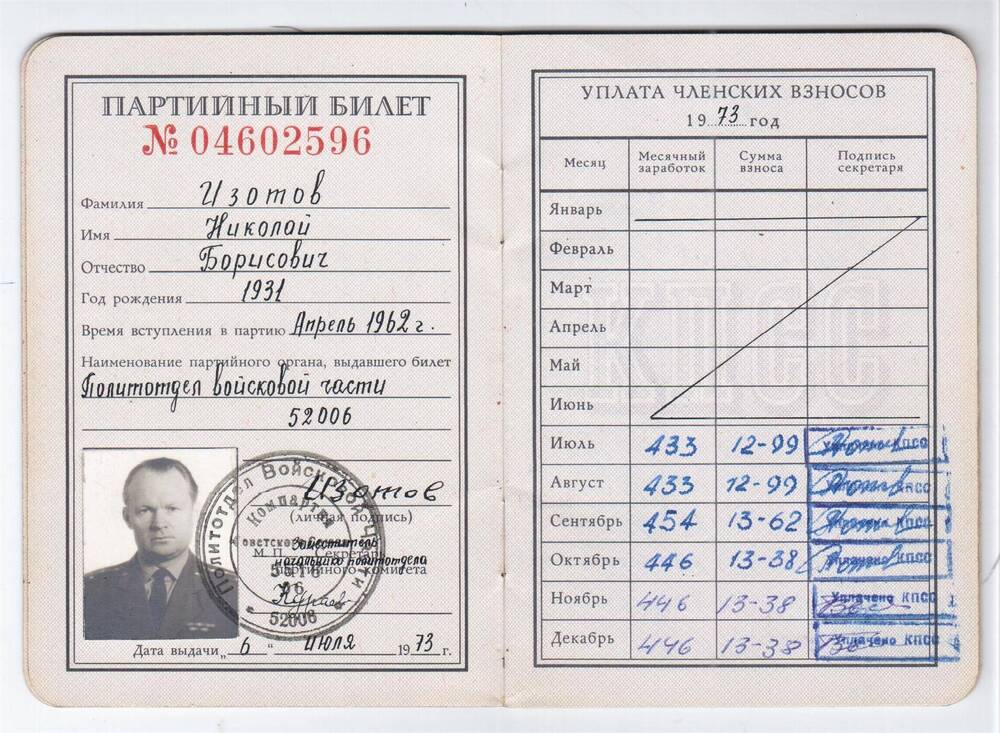 ПАРТИЙНЫЙ БИЛЕТ
№ 04602596
Фамилия Изотов
Имя Николай
Отчество Борисович
Год рождения 1931
Время вступления в партию Апрель 1962 г.
Наименование партийного органа, выдавшего билет
Политотдел войсковой части
52006
Изотов
(личная подпись)
Политотдел Войсковой части
Компартия
Советского
Заместитель
М. П. Секретарь
начальника политотдела
партийного комитета
52006
Дата выдачи „ 6 “ июля 1973 г.
УПЛАТА ЧЛЕНСКИХ ВЗНОСОВ
1973 год
Месяц Месячный заработок Сумма взноса Подпись секретаря
Январь
Февраль
Март
КПСС
Апрель
Май
Июнь
Июль 433 12-99 Уплачено КПСС
Август 433 12-99 Уплачено КПСС
Сентябрь 454 13-62 Уплачено КПСС
Октябрь 446 13-38 Уплачено КПСС
Ноябрь 446 13-38 Уплачено КПСС
Декабрь 446 13-38 Уплачено КПСС